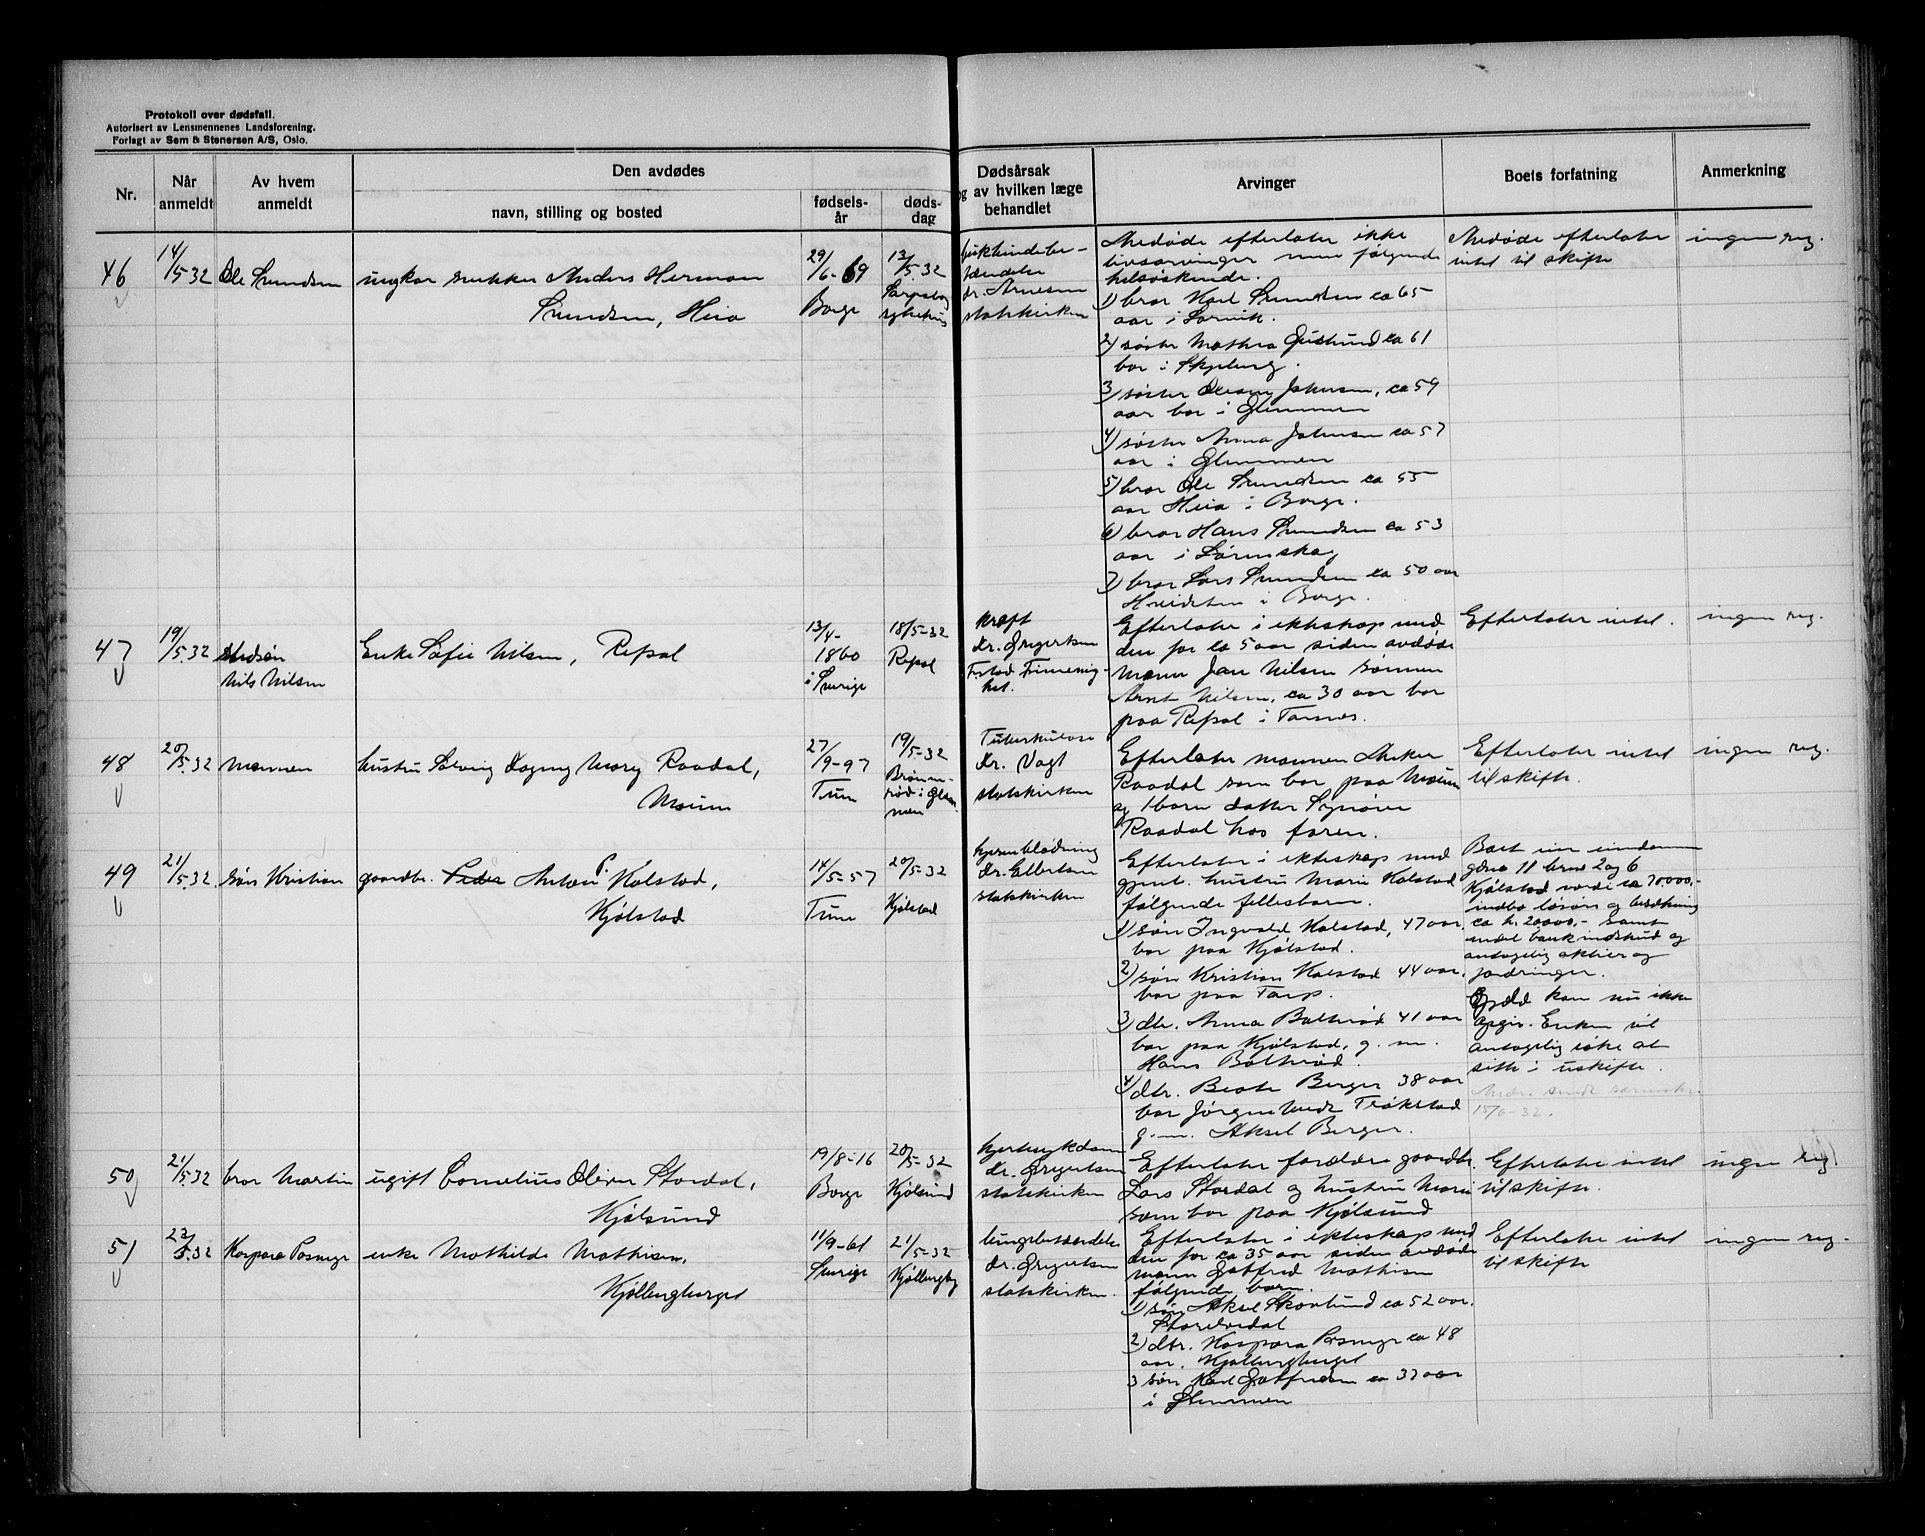 Protokoll over dødsfall.
Autorisert av Lensmennenes Landsforening.
Forlagt av Sem & Stenersen A/S, Oslo.
Nr.
Når anmeldt
Av hvem anmeldt
Den avdødes
navn, stilling og bosted
fødsels-år
døds-dag
Dødsårsak
og av hvilken læge
behandlet
Arvinger
Boets forfatning
Anmerkning
46
14/5 32
Ole Svendsen
ungkar snekker Anders Herman
Svendsen, Heia
29/6-69
Borge
13/5-32
Sarpsborg
sykehus
dr. Arnesen
statskirken
Avdøde efterlater ikke
livsarvinger men følgende
helsøskende.
1) bror Karl Svendsen ca 65
aar i Larvik.
2) søster Mathea Gustund ca 61
bor i Skjeberg.
3) søster Johnsen, ca 59
aar bor i Glemmen
4) søster Anna Johnsen ca 57
aar i Glemmen
5) bror Ole Svendsen ca 55
aar Heia i Borge.
6) bror Hans Svendsen ca 53
aar i Lørenskog
7) bror Lars Svendsen ca 50 aar
Hvidsten i Borge.
Avdøde efterlater
intet til skifte
ingen reg.
47
19/5.32
stedsøn
Nils Nilsen
Enke Sofie Nilsen, Refsal
13/4-
1860
i Sverige
18/5-32
Refsal
kræft
dr. Gregertsen
Fristad Frimenig-
het.
Efterlater i ekteskap med
den for ca 5 aar siden avdøde
mann Jan Nilsen sønnen
Arnt Nilsen, ca 30 aar bor
paa Refsal i Torsnes.
Efterlater intet.
ingen reg.
48
20/5.32
Mannen
hustru Solveig Dagny Mary Raadal,
Moum
27/9-97
Tune
19/5-32
Brønne-
rød i Glem-
men
Tuberkulose
dr. Vogt
statskirken
Efterlater mannen Anker
Raadal som bor paa Moum
og 1 barn datter Synøve
Raadal hos faren.
Efterlater intet
til skifte.
ingen reg.
49
21/5.32
søn Kristian
gaardbr. Peder Anton P. Kolstad,
Kjølstad
14/5-57
Tune
20/5-32
Kjølstad
hjerneblødning
dr. Elbertsen
statskirken
Efterlater i ekteskap med
gjenl. hustru Marie Kolstad
følgende fellesbarn.
1) søn Ingvald Kolstad, 47 aar
bor paa Kjølstad.
2) søn Kristian Kolstad 44 aar.
bor paa Torp.
3) dtr. Anna Bolterød 41 aar
bor paa Kjølstad, g. m.
Hans Bolterød.
4) dtr. Beate Berger 38 aar
bor Jørgen Trøkstad
g. m. Aksel Berger.
Boet eier eiendommen
gdno 11 brno 2 og 6
Kjølstad verdi ca 70000.-
indbo løsøre og besetning
ca kr. 20000.- samt
endel bankindskud og
antagelig aktier og
fordringer.
Gjæld kan nu ikke
opgis. Enken vil
antagelig søke at
sitte i uskifte.
15/6-32.
50
21/5.32
bror Martin
ugift Cornelius Oliver Stordal,
Kjølsund
19/8-16
Borge
20/5-32
Kjølsund
hjertesykdom
dr. Gregertsen
statskirken
Efterlater forældre gaardbr.
Lars Stordal og hustru Marie
som bor paa Kjølsund
Efterlater intet
til skifte.
ingen reg.
51
23/5.32
Kaspara Posmyr
enke Mathilde Mathisen,
Kjølbergberget
11/9-61
Sverige
21/5-32
Kjølbergbg
lungebetændelse
dr. Gregertsen
statskirken.
Efterlater i ekteskap med
den for ca 35 aar siden avdøde
mann Gotfred Mathisen
følgende barn.
1) søn Aksel Skovlund ca 52 aar.
2) dtr. Kaspara Posmyr ca 48
aar. Kjølbergberget
3 søn Karl Gotfredsen ca 37 aar
i Glemmen
Efterlater intet
til skifte
ingen reg.